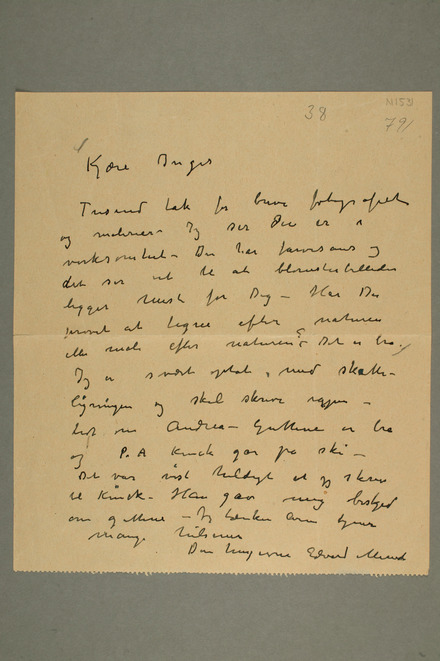 38
N1531
79
Kjære Inger
Tusend tak for brevet fotografiet
og malerier – Jeg ser Du er i
virksomhed – Du har farvesans og
det ser ut til at blomsterbilleder
ligger mest for Dig – Har Du
prøvet at tegne efter naturen
eller male efter naturen? – Det er bra
Jeg er svært optat med skatte-
ligningen og skal skrive
om Andrea – Guttene er bra
og P.A Kinck går på ski –
Det var vist heldigt at jeg skrev
til Kinck – Han gav mig besked
om guttene – Jeg tænker
mange hilsener
Din hengivne Edvard Munch